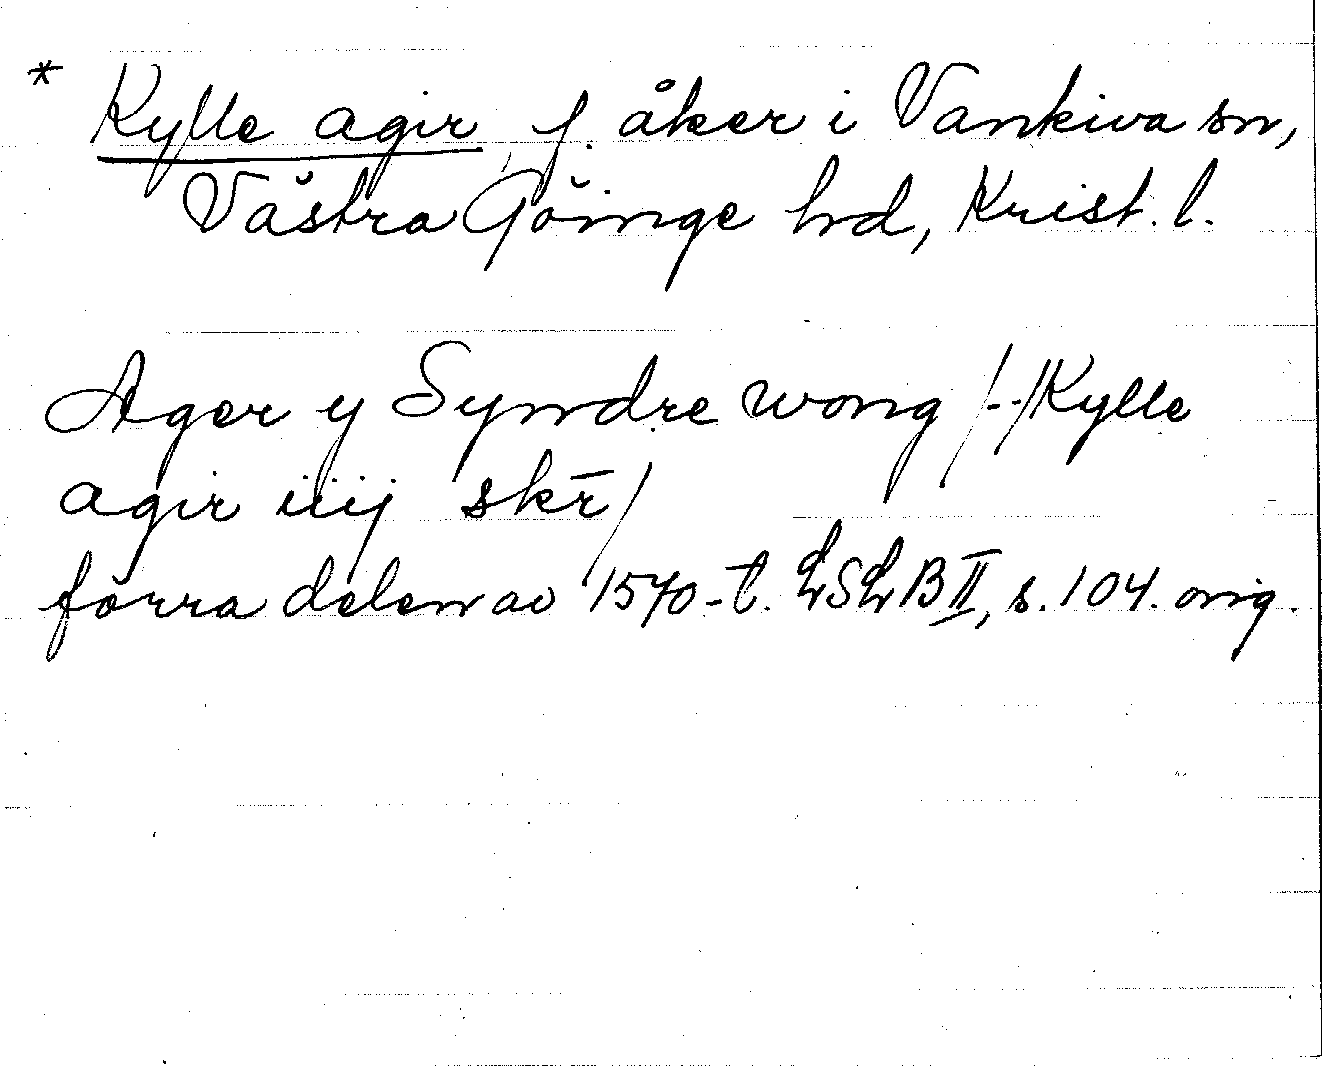 * Kylle agir, f. åker i Vankiva sn,
Västra Göinge hd, Krist. l.
Ager y Syndre wong /--/ Kylle
agir iiij skr̄ /
förra delen av 1570-t. LSLB II, s. 104. orig.